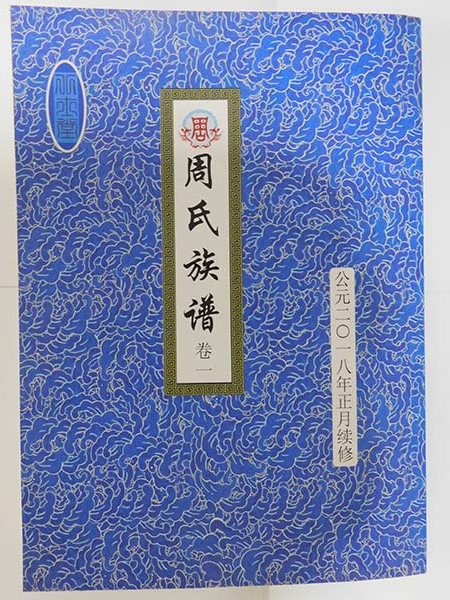 周
周氏族谱
卷一
公元二〇一八年正月续修